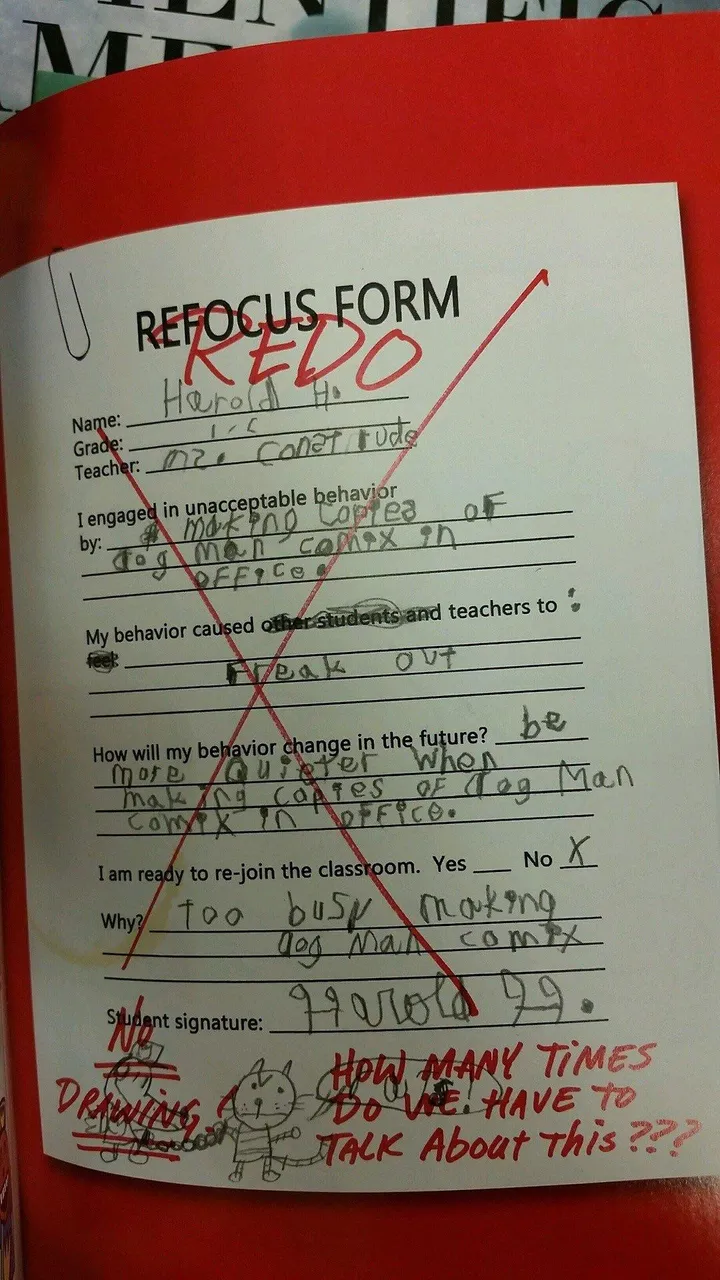 REFOCUS FORM
REDO
Name: Harold H.
Grade:
Teacher: mz. Construde
I engaged in unacceptable behavior
by: making copies of
dog man comix in
office.
My behavior caused other students and teachers to :
feel:
Freak out
How will my behavior change in the future? be
more Quieter when
making copies of dog Man
comix in office.
I am ready to re-join the classroom. Yes ___ No X
Why? too busy making
dog Man comix
Student signature: Harold H.
No
DRAWING!
HOW MANY TIMES
DO WE HAVE TO
TALK About This???